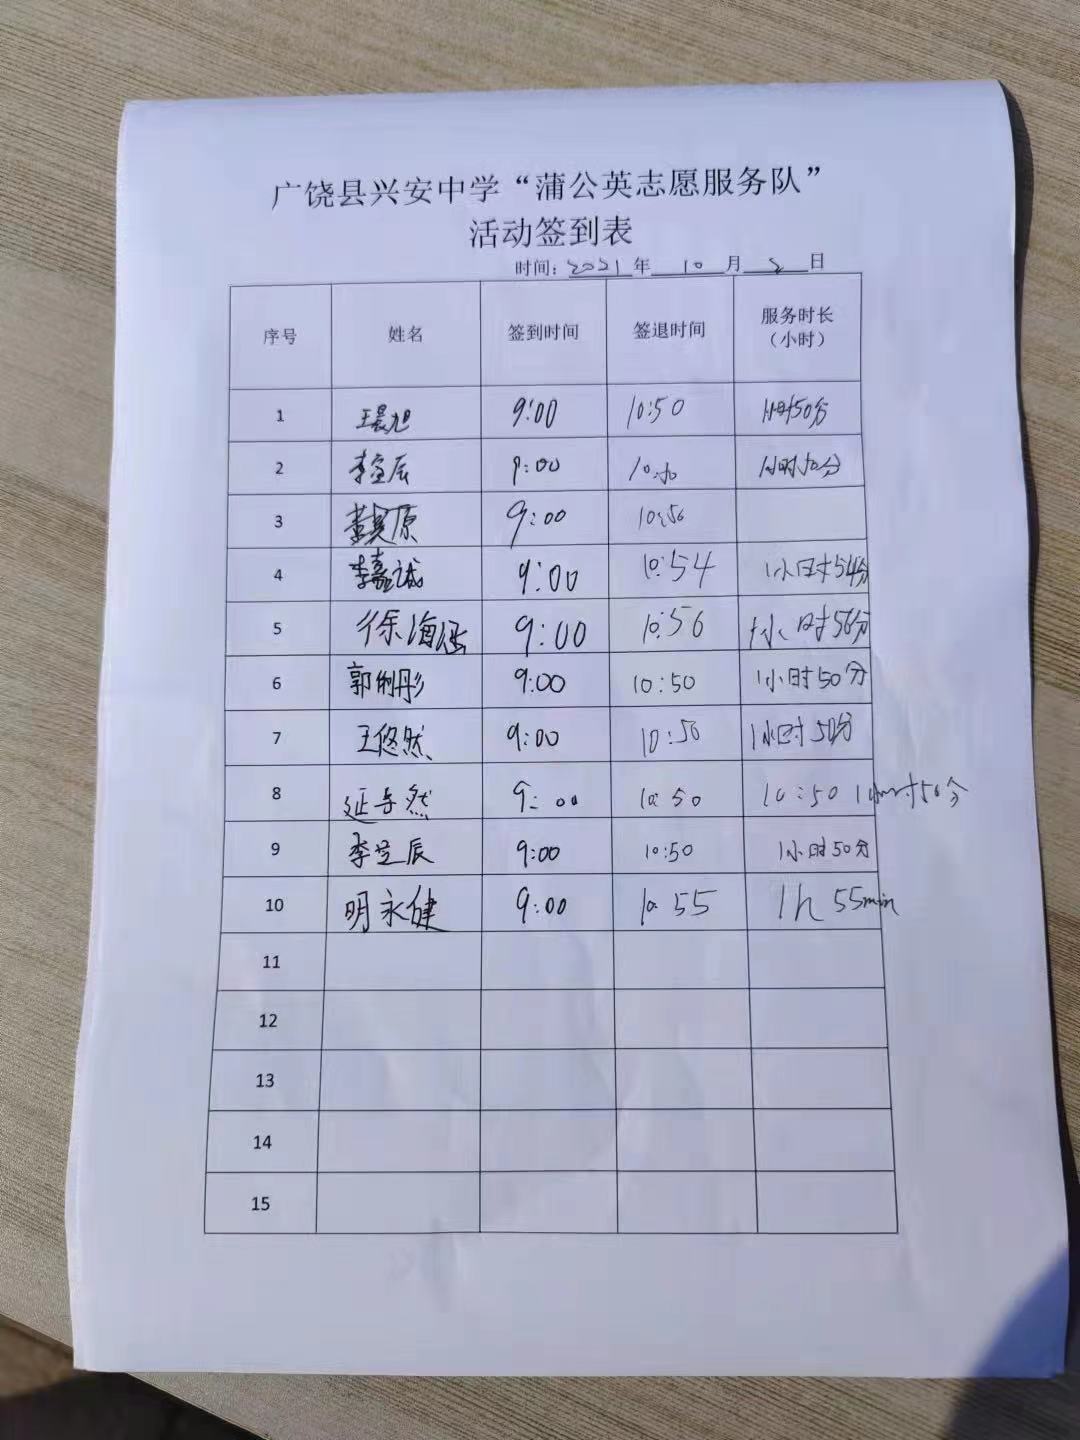 广饶县兴安中学“蒲公英志愿服务队”
活动签到表
时间：2021年 10 月 2 日
序号 姓名 签到时间 签退时间 服务时长（小时）
1 王晨旭 9:00 10:50 1小时50分
2 9:00 1小时50分
3 9:00 10:50
4 李嘉诚 9:00 10:54 1小时54分
5 徐海涵 9:00 10:56 1小时56分
6 9:00 10:50 1小时50分
7 王悠然 9:00 10:50 1小时50分
8 9:00 10:50 10:50 1小时50分
9 9:00 10:50 1小时50分
10 明永健 9:00 10:55 1h 55min
11
12
13
14
15